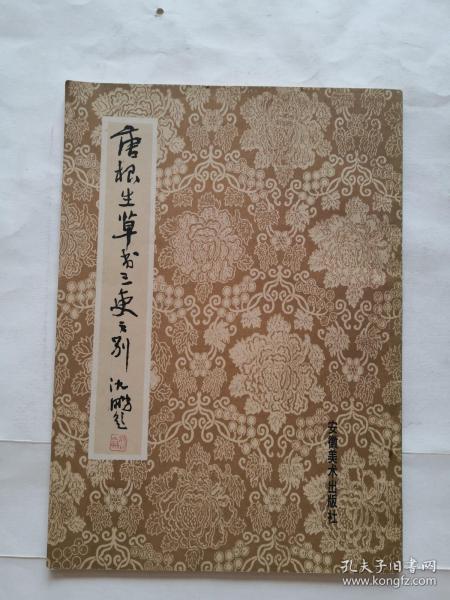 唐根生草书三吏三别
沈鹏题
安徽美术出版社
孔夫子旧书网
www.kongfz.com